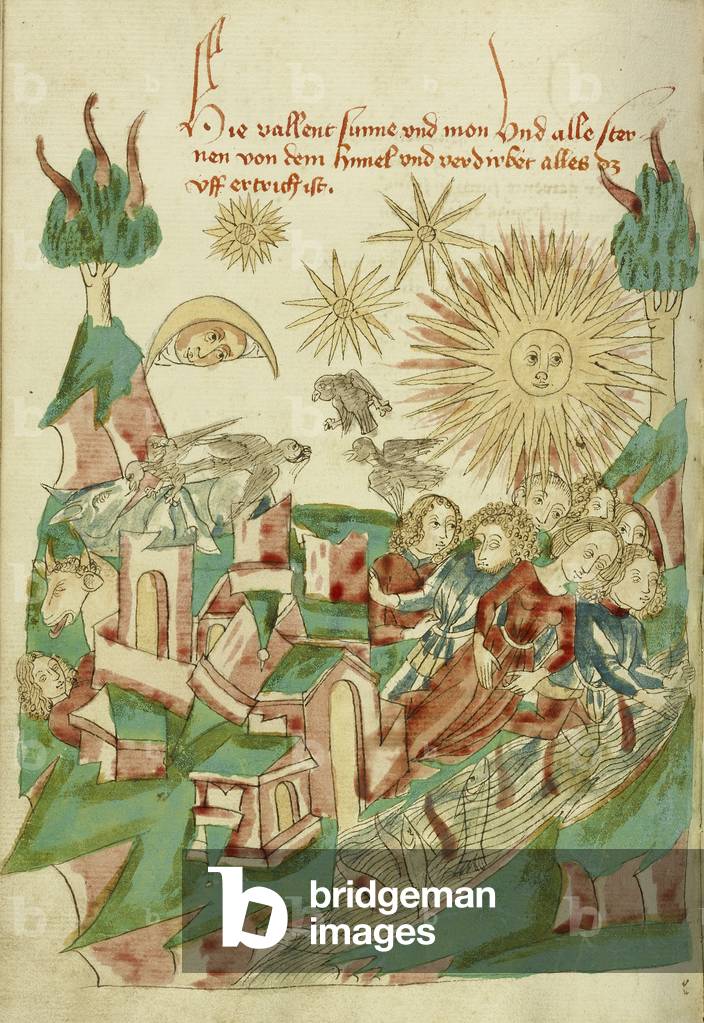 Hie vallent sunne vnd mon Vnd alle ster-
nen von dem himel vnd verdirbet alles dz
vff ertrich ist.
b bridgeman
images